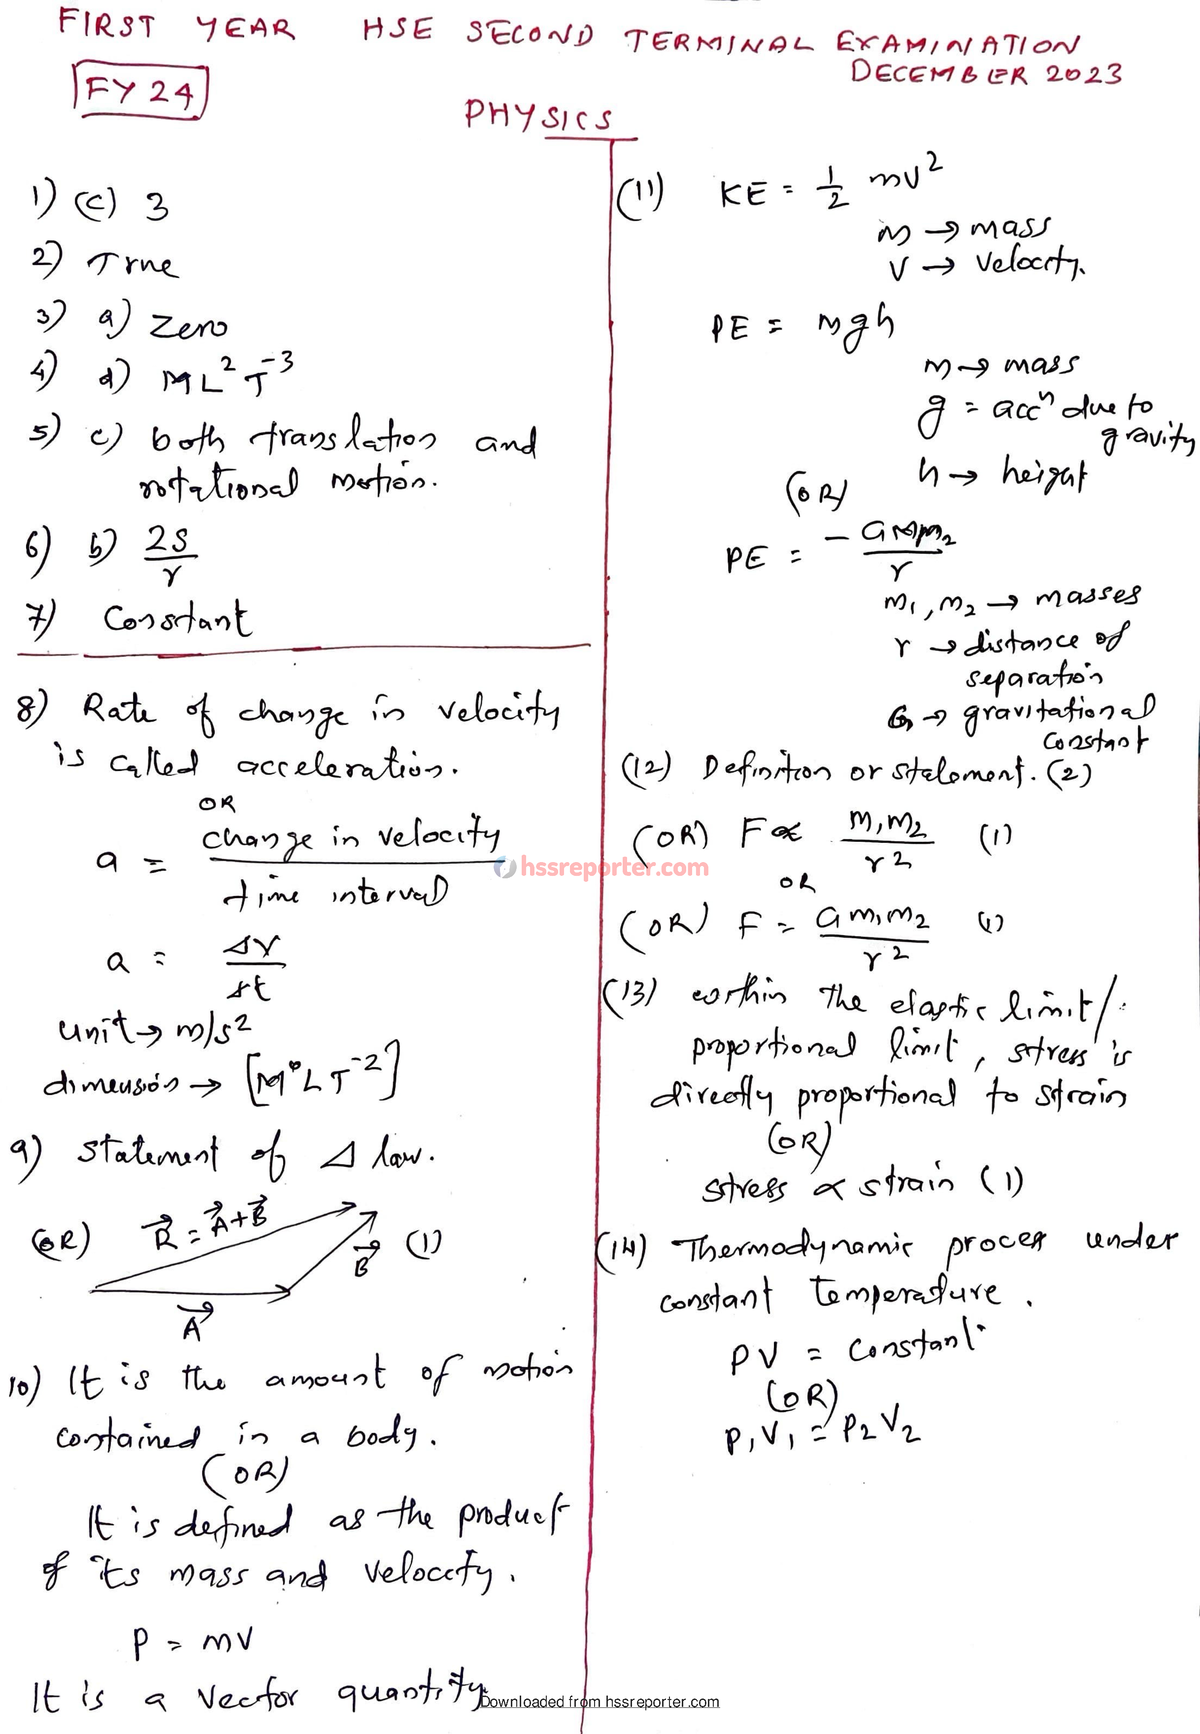 FIRST YEAR HSE SECOND TERMINAL EXAMINATION
DECEMBER 2023
FY 24
PHYSICS
1) (c) 3
2) True
3) a) Zero
4) d) ML²T⁻³
5) c) both translation and
rotational motion.
6) b) 2S/r
7) Constant
8) Rate of change in velocity
is called acceleration.
OR
a = change in velocity / time interval
a = Δv/Δt
unit → m/s²
dimension → [M⁰LT⁻²]
9) Statement of Δ law.
(OR) R⃗ = A⃗+B⃗
B⃗ (1)
A⃗
10) It is the amount of motion
contained in a body.
(OR)
It is defined as the product
of its mass and velocity.
P = mv
It is a vector quantity.
(11) KE = 1/2 mv²
m → mass
v → velocity.
PE = mgh
m → mass
g = accⁿ due to
gravity
h → height
(OR)
PE = -Gm₁m₂/r
m₁, m₂ → masses
r → distance of
separation
G → gravitational
constant
(12) Definition or statement. (2)
(OR) F ∝ m₁m₂/r² (1)
OR
(OR) F = Gm₁m₂/r² (1)
(13) within the elastic limit/
proportional limit, stress is
directly proportional to strain
(OR)
stress ∝ strain (1)
(14) Thermodynamic process under
constant temperature.
PV = constant
(OR)
P₁V₁ = P₂V₂
hssreporter.com
Downloaded from hssreporter.com